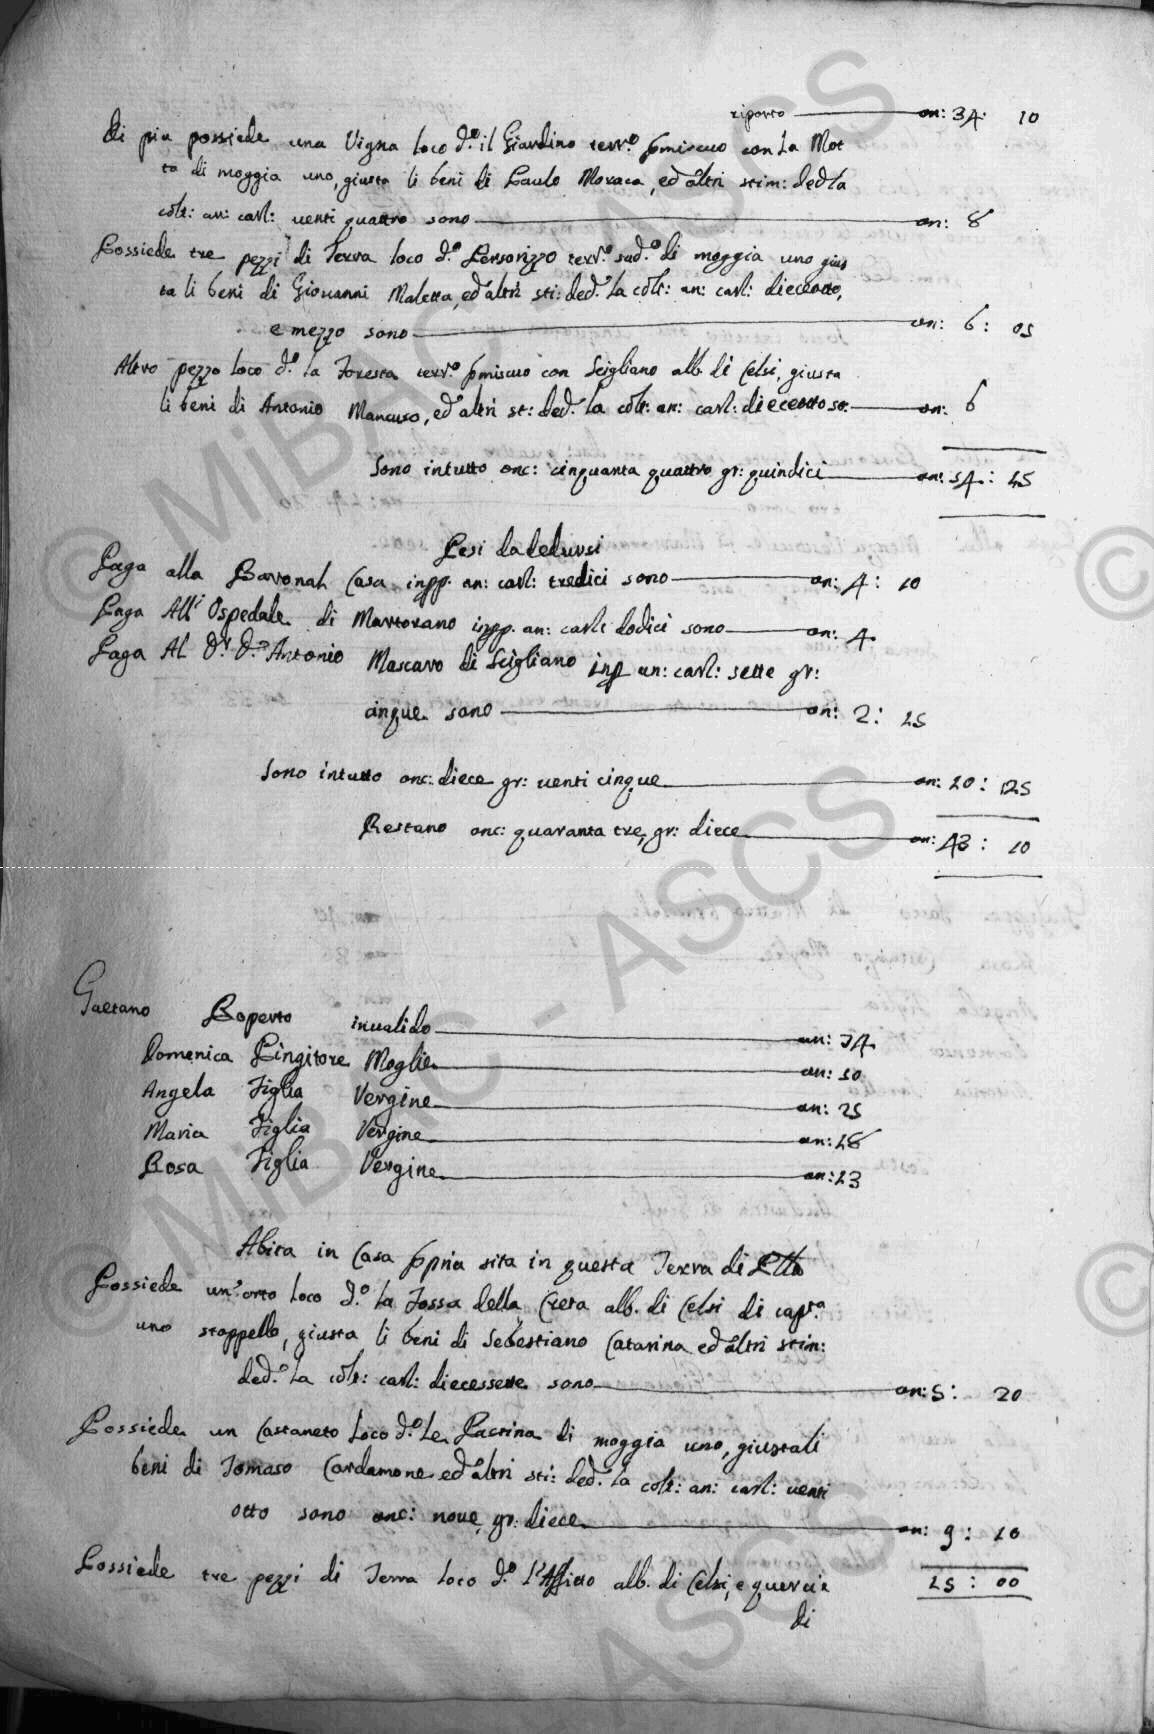 riporto on: 34: 10
Di piu possiede una Vigna loco d.º il Giardino terr.º pmiscuo con La Mot
ta di moggia uno, giusta li beni di Paulo Moraca, ed altri stim: ded: la
colt: an: carl: venti quattro sono on: 8
Possiede tre pezzi di Terra loco d.º Persorizzo terr.º sud.º di moggia uno gius
ta li beni di Giovanni Maletta, ed altri sti: ded.ª la colt: an: carl: dieceotto,
e mezzo sono on: 6: 05
Altro pezzo loco d.º la Foresta terr.º pmiscuo con Scigliano alb. di Celsi, giusta
li beni di Antonio Mancuso, ed altri st: ded.ª la colt: an: carl: dieceotto so: on: 6
Sono intutto onc: cinquanta quattro gr: quindici on: 54: 15
Pesi da dedursi
Paga alla Baronal Casa inpp. an: carl: tredici sono on: 4: 10
Paga All' Ospedale di Martorano inpp. an: carl: dodici sono on: 4
Paga Al D.r D.n Antonio Mascaro di Scigliano inp an: carl: sette gr:
cinque sono on: 2: 15
Sono intutto onc: diece gr: venti cinque on: 10: 25
Restano onc: quaranta tre, gr: diece on: 43: 10
Gaetano Roperto invalido an: 54
Domenica Pingitore Moglie an: 50
Angela Figlia Vergine an: 25
Maria Figlia Vergine an: 18
Rosa Figlia Vergine an: 13
Abita in Casa ppria sita in questa Terra di
Possiede un'orto loco d.º La Fossa della Creta alb. di Celsi di cap.tà
uno stoppello, giusta li beni di Sebestiano Catarina ed altri stim:
ded.ª la colt: carl: diecessette sono on: 5: 20
Possiede un Castaneto loco d.º Le Pastina di moggia uno, giusta li
beni di Tomaso Cardamone ed altri sti: ded.ª la colt: an: carl: venti
otto sono onc: nove, gr: diece on: 9: 10
Possiede tre pezzi di Terra loco d.º L'Affitto alb. di Celsi, e querci e 15: 00
di
© MiBAC - ASCS
© MiBAC - ASCS
©
©
ASCS